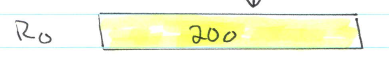 R₀ 200